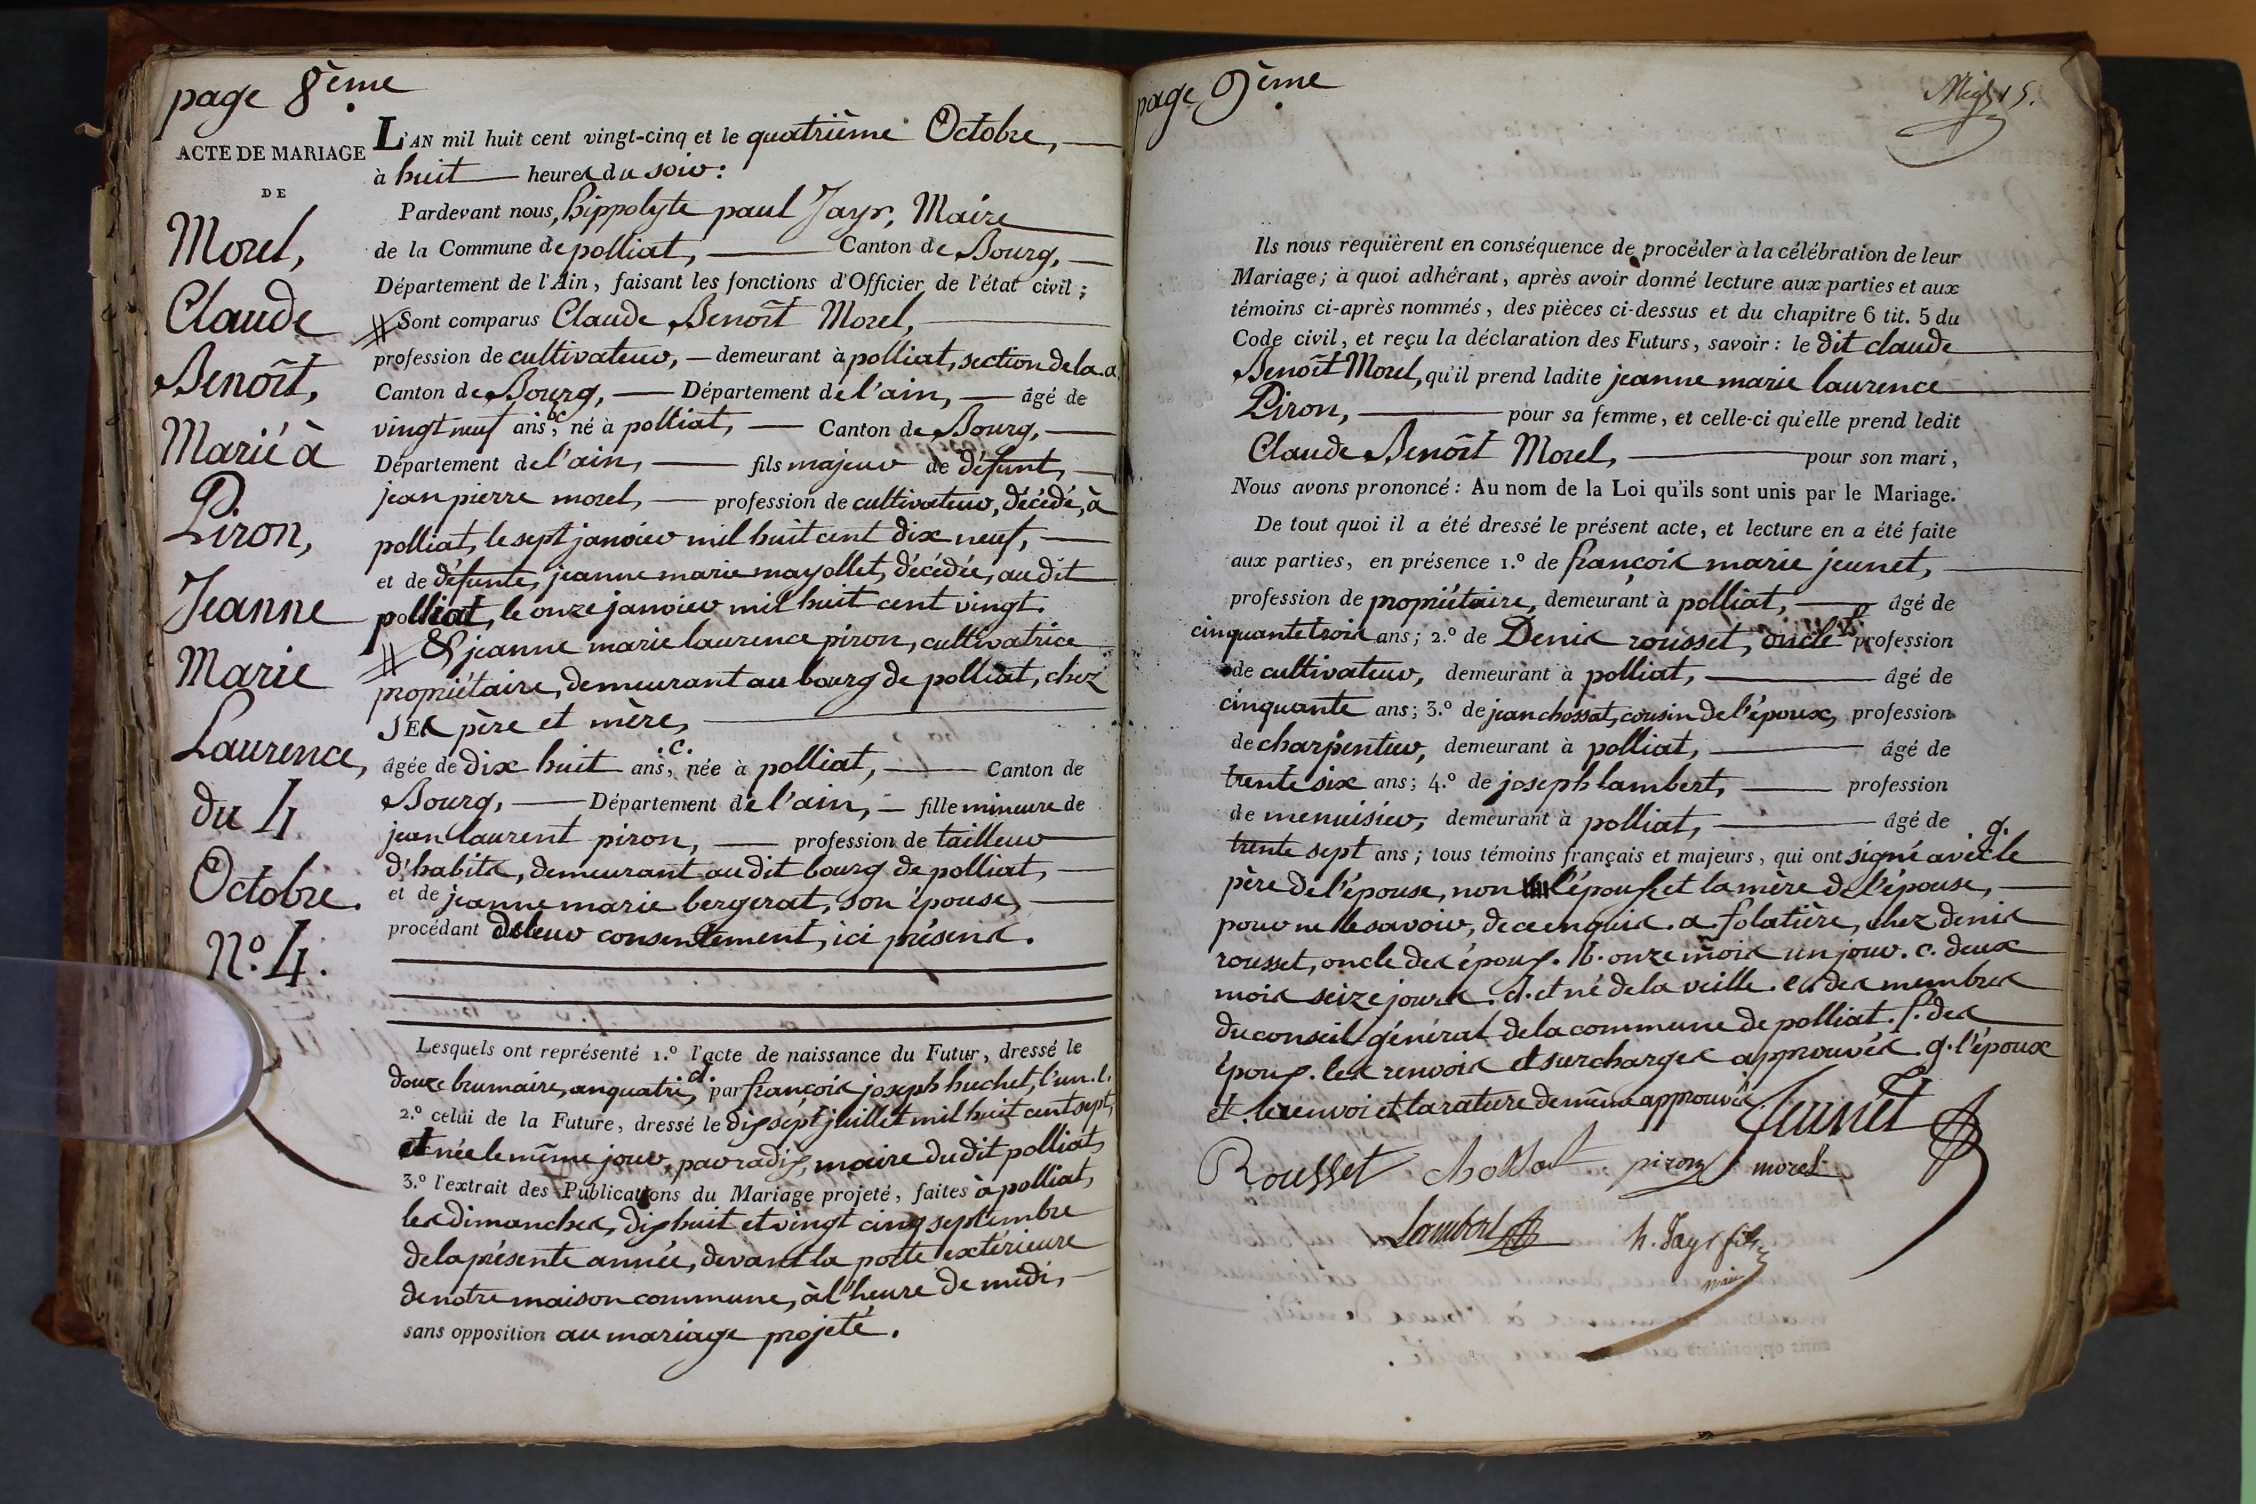 page 8ème
ACTE DE MARIAGE
DE
Morel,
Claude
Benoît,
Marié à
Piron,
Jeanne
Marie
Laurence,
du 4
Octobre.
N.o 4.
L'AN mil huit cent vingt-cinq et le quatrième Octobre,
à huit heures du soir:
Pardevant nous, hippolyte paul Jayr, Maire
de la Commune de polliat, Canton de Bourg,
Département de l'Ain, faisant les fonctions d'Officier de l'état civil;
Sont comparus Claude Benoît Morel,
profession de cultivateur, demeurant à polliat, section de la .a.
Canton de Bourg, Département de l'ain, âgé de
vingt neuf ans, né à polliat, Canton de Bourg,
Département de l'ain, fils majeur de défunt,
jean pierre morel, profession de cultivateur, décédé, à
polliat, le sept janvier mil huit cent dix neuf,
et de défunte, jeanne marie mayollet, décédée, au dit
polliat, le onze janvier mil huit cent vingt.
& jeanne marie laurence piron, cultivatrice
propriétaire, demeurant au bourg de polliat, chez
ses père et mère,
âgée de dix huit ans .c. née à polliat, Canton de
Bourg, Département de l'ain, fille mineure de
jean laurent piron, profession de tailleur
d'habits, demeurant au dit bourg de polliat,
et de jeanne marie bergerat, son épouse,
procédant de leur consentement, ici présens.
Lesquels ont représenté 1.o l'acte de naissance du Futur, dressé le
douze brumaire, an quatre, .d. par françois joseph huchet, l'un .e.
2.o celui de la Future, dressé le dix sept juillet mil huit cent sept,
et née le même jour, par radix, maire du dit polliat,
3.o l'extrait des Publications du Mariage projeté, faites à polliat,
les dimanches, dix huit et vingt cinq septembre
de la présente année, devant la porte extérieure
de notre maison commune, à l'heure de midi,
sans opposition au mariage projeté.
page 9ème
Ils nous requièrent en conséquence de procéder à la célébration de leur
Mariage; à quoi adhérant, après avoir donné lecture aux parties et aux
témoins ci-après nommés, des pièces ci-dessus et du chapitre 6 tit. 5 du
Code civil, et reçu la déclaration des Futurs, savoir: le dit claude
Benoît Morel, qu'il prend ladite jeanne marie laurence
Piron, pour sa femme, et celle-ci qu'elle prend ledit
Claude Benoît Morel, pour son mari,
Nous avons prononcé: Au nom de la Loi qu'ils sont unis par le Mariage.
De tout quoi il a été dressé le présent acte, et lecture en a été faite
aux parties, en présence 1.o de françois marie jeunet,
profession de propriétaire, demeurant à polliat, âgé de
cinquante trois ans; 2.o de Denis rousset, oncle profession
de cultivateur, demeurant à polliat, âgé de
cinquante ans; 3.o de jean chossat, cousin de l'époux, profession
de charpentier, demeurant à polliat, âgé de
trente six ans; 4.o de joseph lambert, profession
de menuisier, demeurant à polliat, âgé de
trente sept ans; tous témoins français et majeurs, qui ont signé avec .g. le
père de l'épouse, non l'épouse et la mère de l'épouse,
pour ne le savoir, de ce enquis. a. folatière, chez denis
rousset, oncle des époux. b. onze mois un jour. c. deux
mois seize jours. d. et né de la veille. e. des membres
du conseil général de la commune de polliat. f. des
époux. les renvois et surcharges approuvés. g. l'époux
et le renvoi et la rature de même approuvés.
Jeunet
Rousset chossat piron morel
Lambert h. Jayr fils
maire